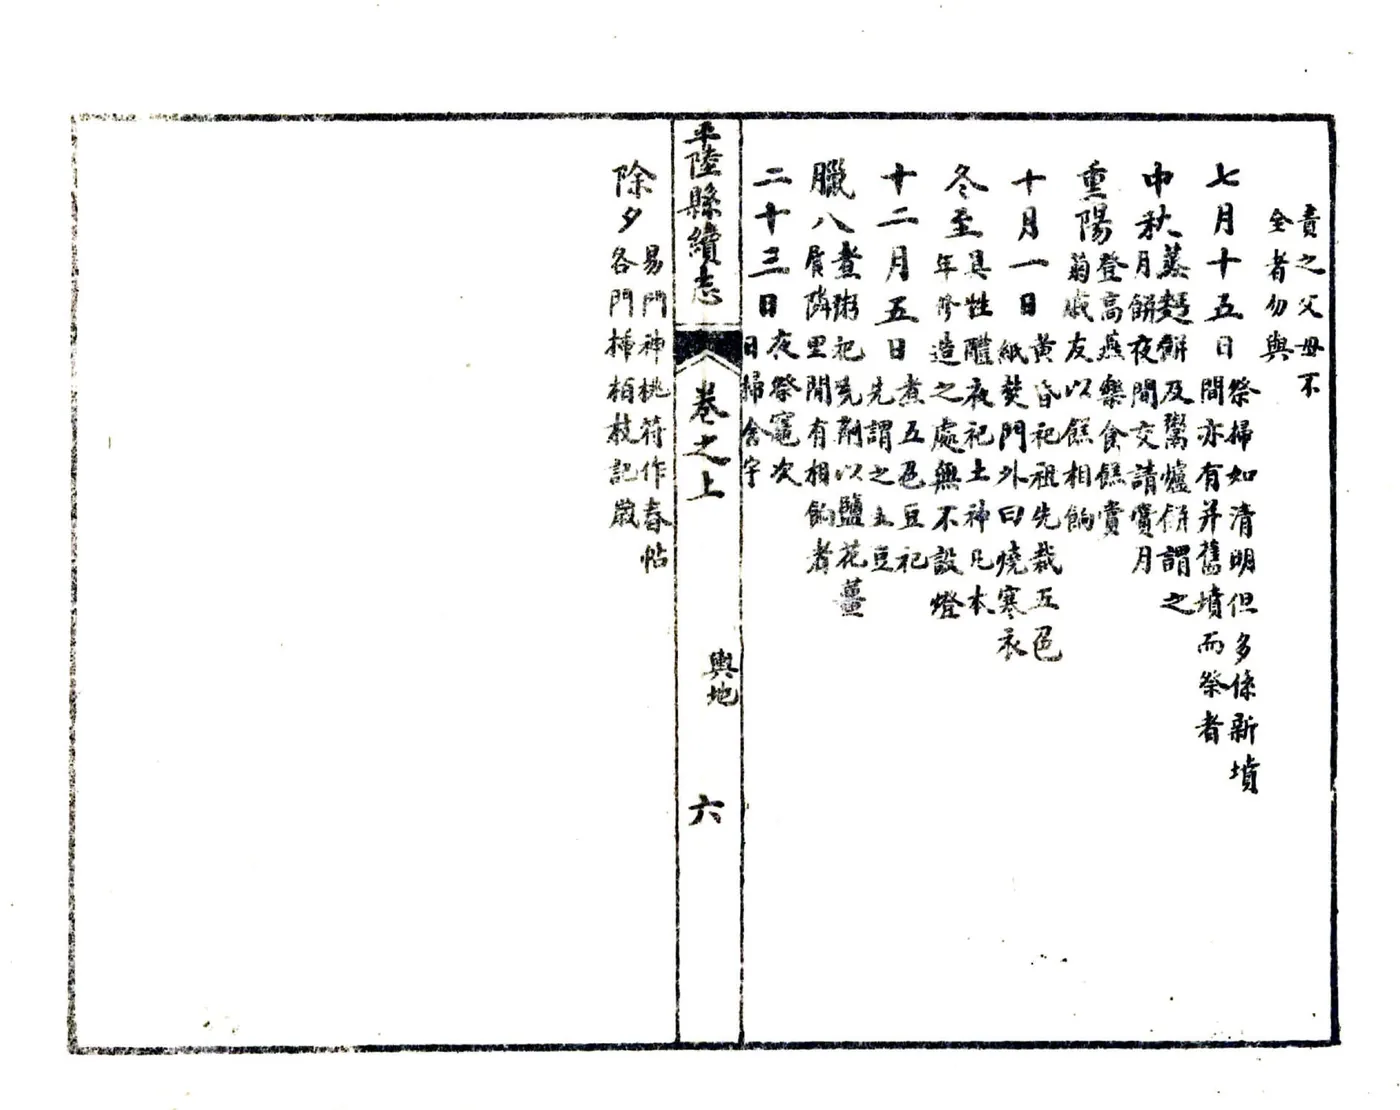 責之父母不
全者勿與
七月十五日祭掃如清明但多係新墳
間亦有并舊墳而祭者
中秋蒸麪餅及鬻爐餅謂之
月餅夜間交請賞月
重陽登高燕樂食餻賞
菊戚友以餻相餉
十月一日黃昏祀祖先裁五色
紙焚門外曰燒寒衣
冬至具牲醴夜祀土神凡本
年修造之處無不設燈
十二月五日煮五色豆祀
先謂之五豆
臘八煮粥祀先劑以鹽花薑
屑隣里間有相餉者
二十三日夜祭竈次
日掃舍宇
平陸縣續志 卷之上 輿地 六
除夕易門神桃符作春帖
各門揷柏枝記歲